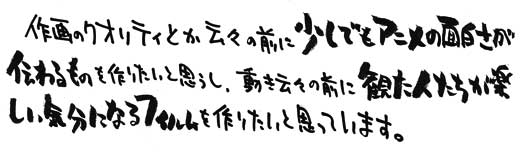 作画のクオリティとか云々の前に少しでもアニメの面白さが
伝わるものを作りたいと思うし、動き云々の前に観た人たちが楽
しい気分になるフィルムを作りたいと思っています。